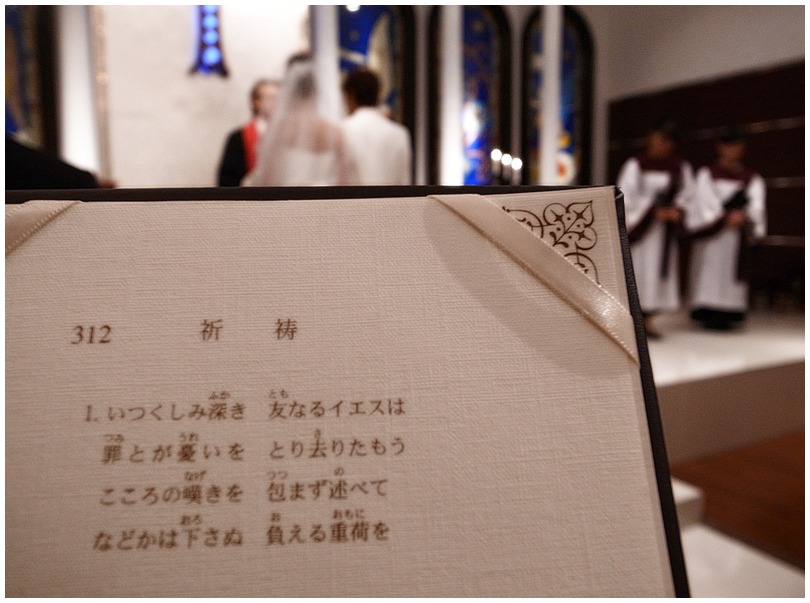 312 祈祷
1. いつくしみ深き 友なるイエスは
罪とが憂いを とり去りたもう
こころの嘆きを 包まず述べて
などかは下さぬ 負える重荷を